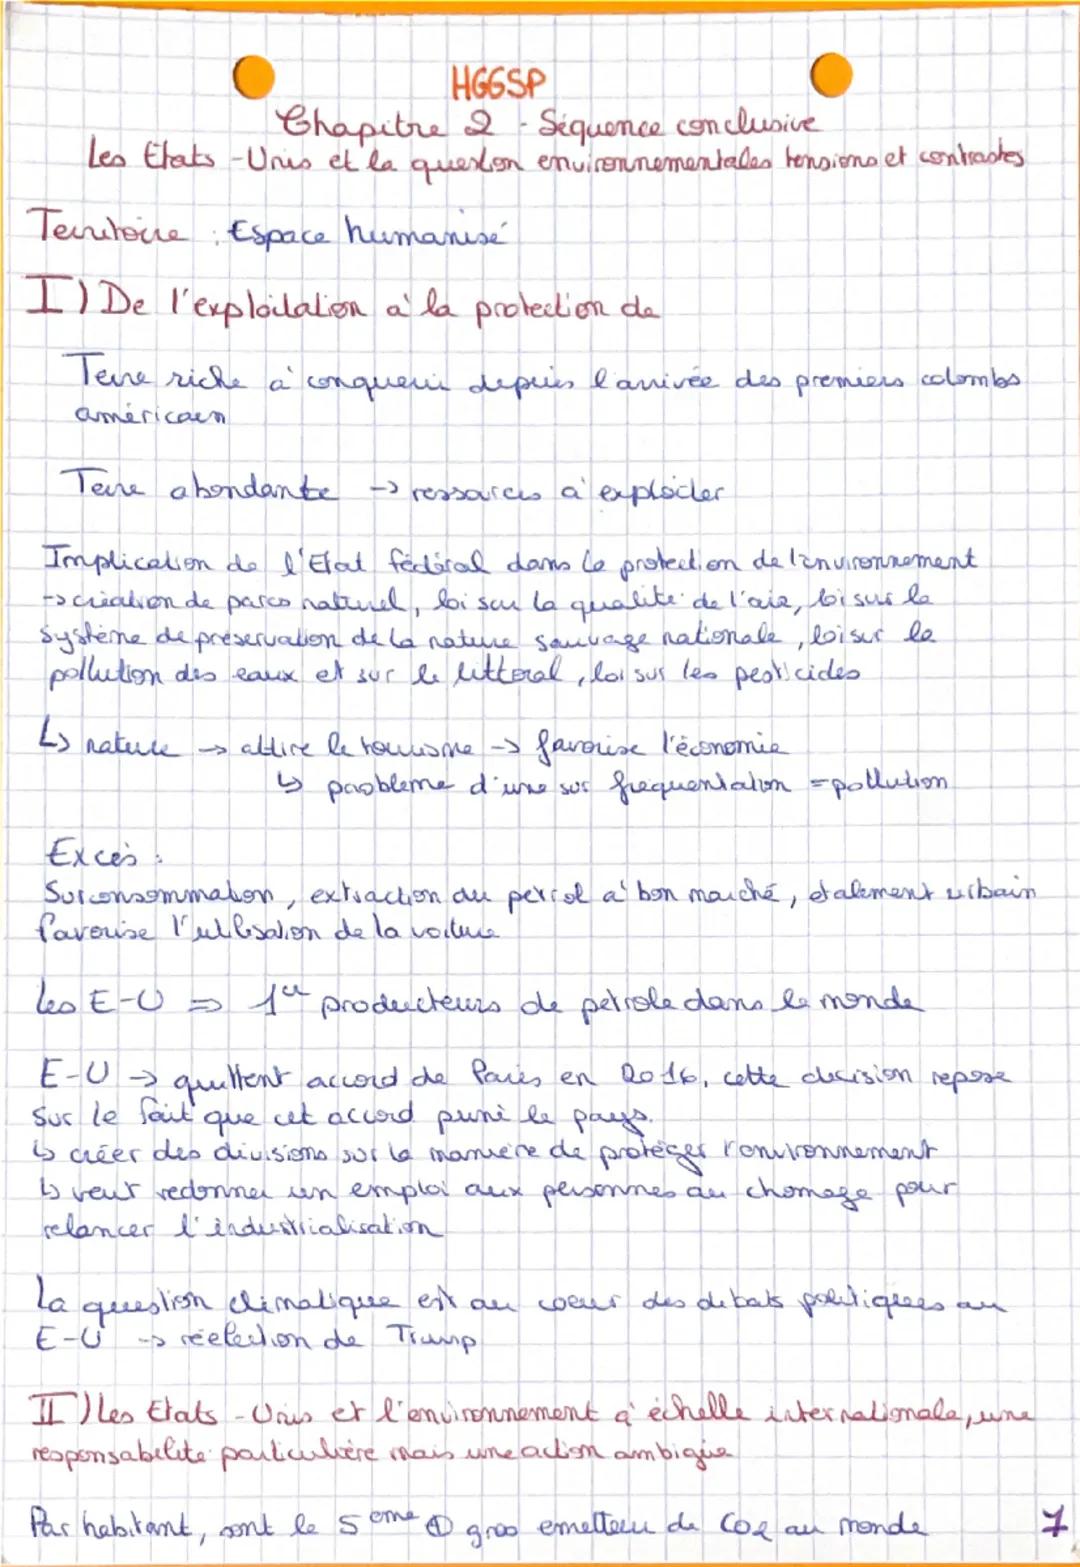 HGGSP
Chapitre 2 - Séquence conclusive
Les Etats-Unis et la question environnementales tensions et contrastes
Territoire : Espace humanisé
I) De l'exploitation à la protection de
Terre riche à conquerir depuis l'arrivée des premiers colombs
américaen
Terre abondante → ressources à exploiter
Implication de l'Etat fédéral dans la protection de l'environnement
→ création de parcs naturel, loi sur la qualité de l'air, loi sur le
système de préservation de la nature sauvage nationale, loi sur la
pollution des eaux et sur le littoral, loi sur les pesticides
↳ nature → attire le tourisme → favorise l'économie
↳ problème d'une sur fréquentation = pollution
Excès :
Surconsommation, extraction du petrol à bon marché, étalement urbain
favorise l'utilisation de la voiture
Les E-U ⇒ 1er producteurs de pétrole dans le monde
E-U → quittent accord de Paris en 2016, cette décision repose
sur le fait que cet accord puni le pays.
↳ créer des divisions sur la manière de protéger l'environnement
↳ veut redonner un emploi aux personnes au chomage pour
relancer l'industrialisation
La question climatique est au coeur des debats politiques au
E-U → réélection de Trump
II) Les Etats-Unis et l'environnement à échelle internationale, une
responsabilité particulière mais une action ambigüe
Par habitant, sont le 5ème ⊕ gros emetteur de CO2 au monde
1